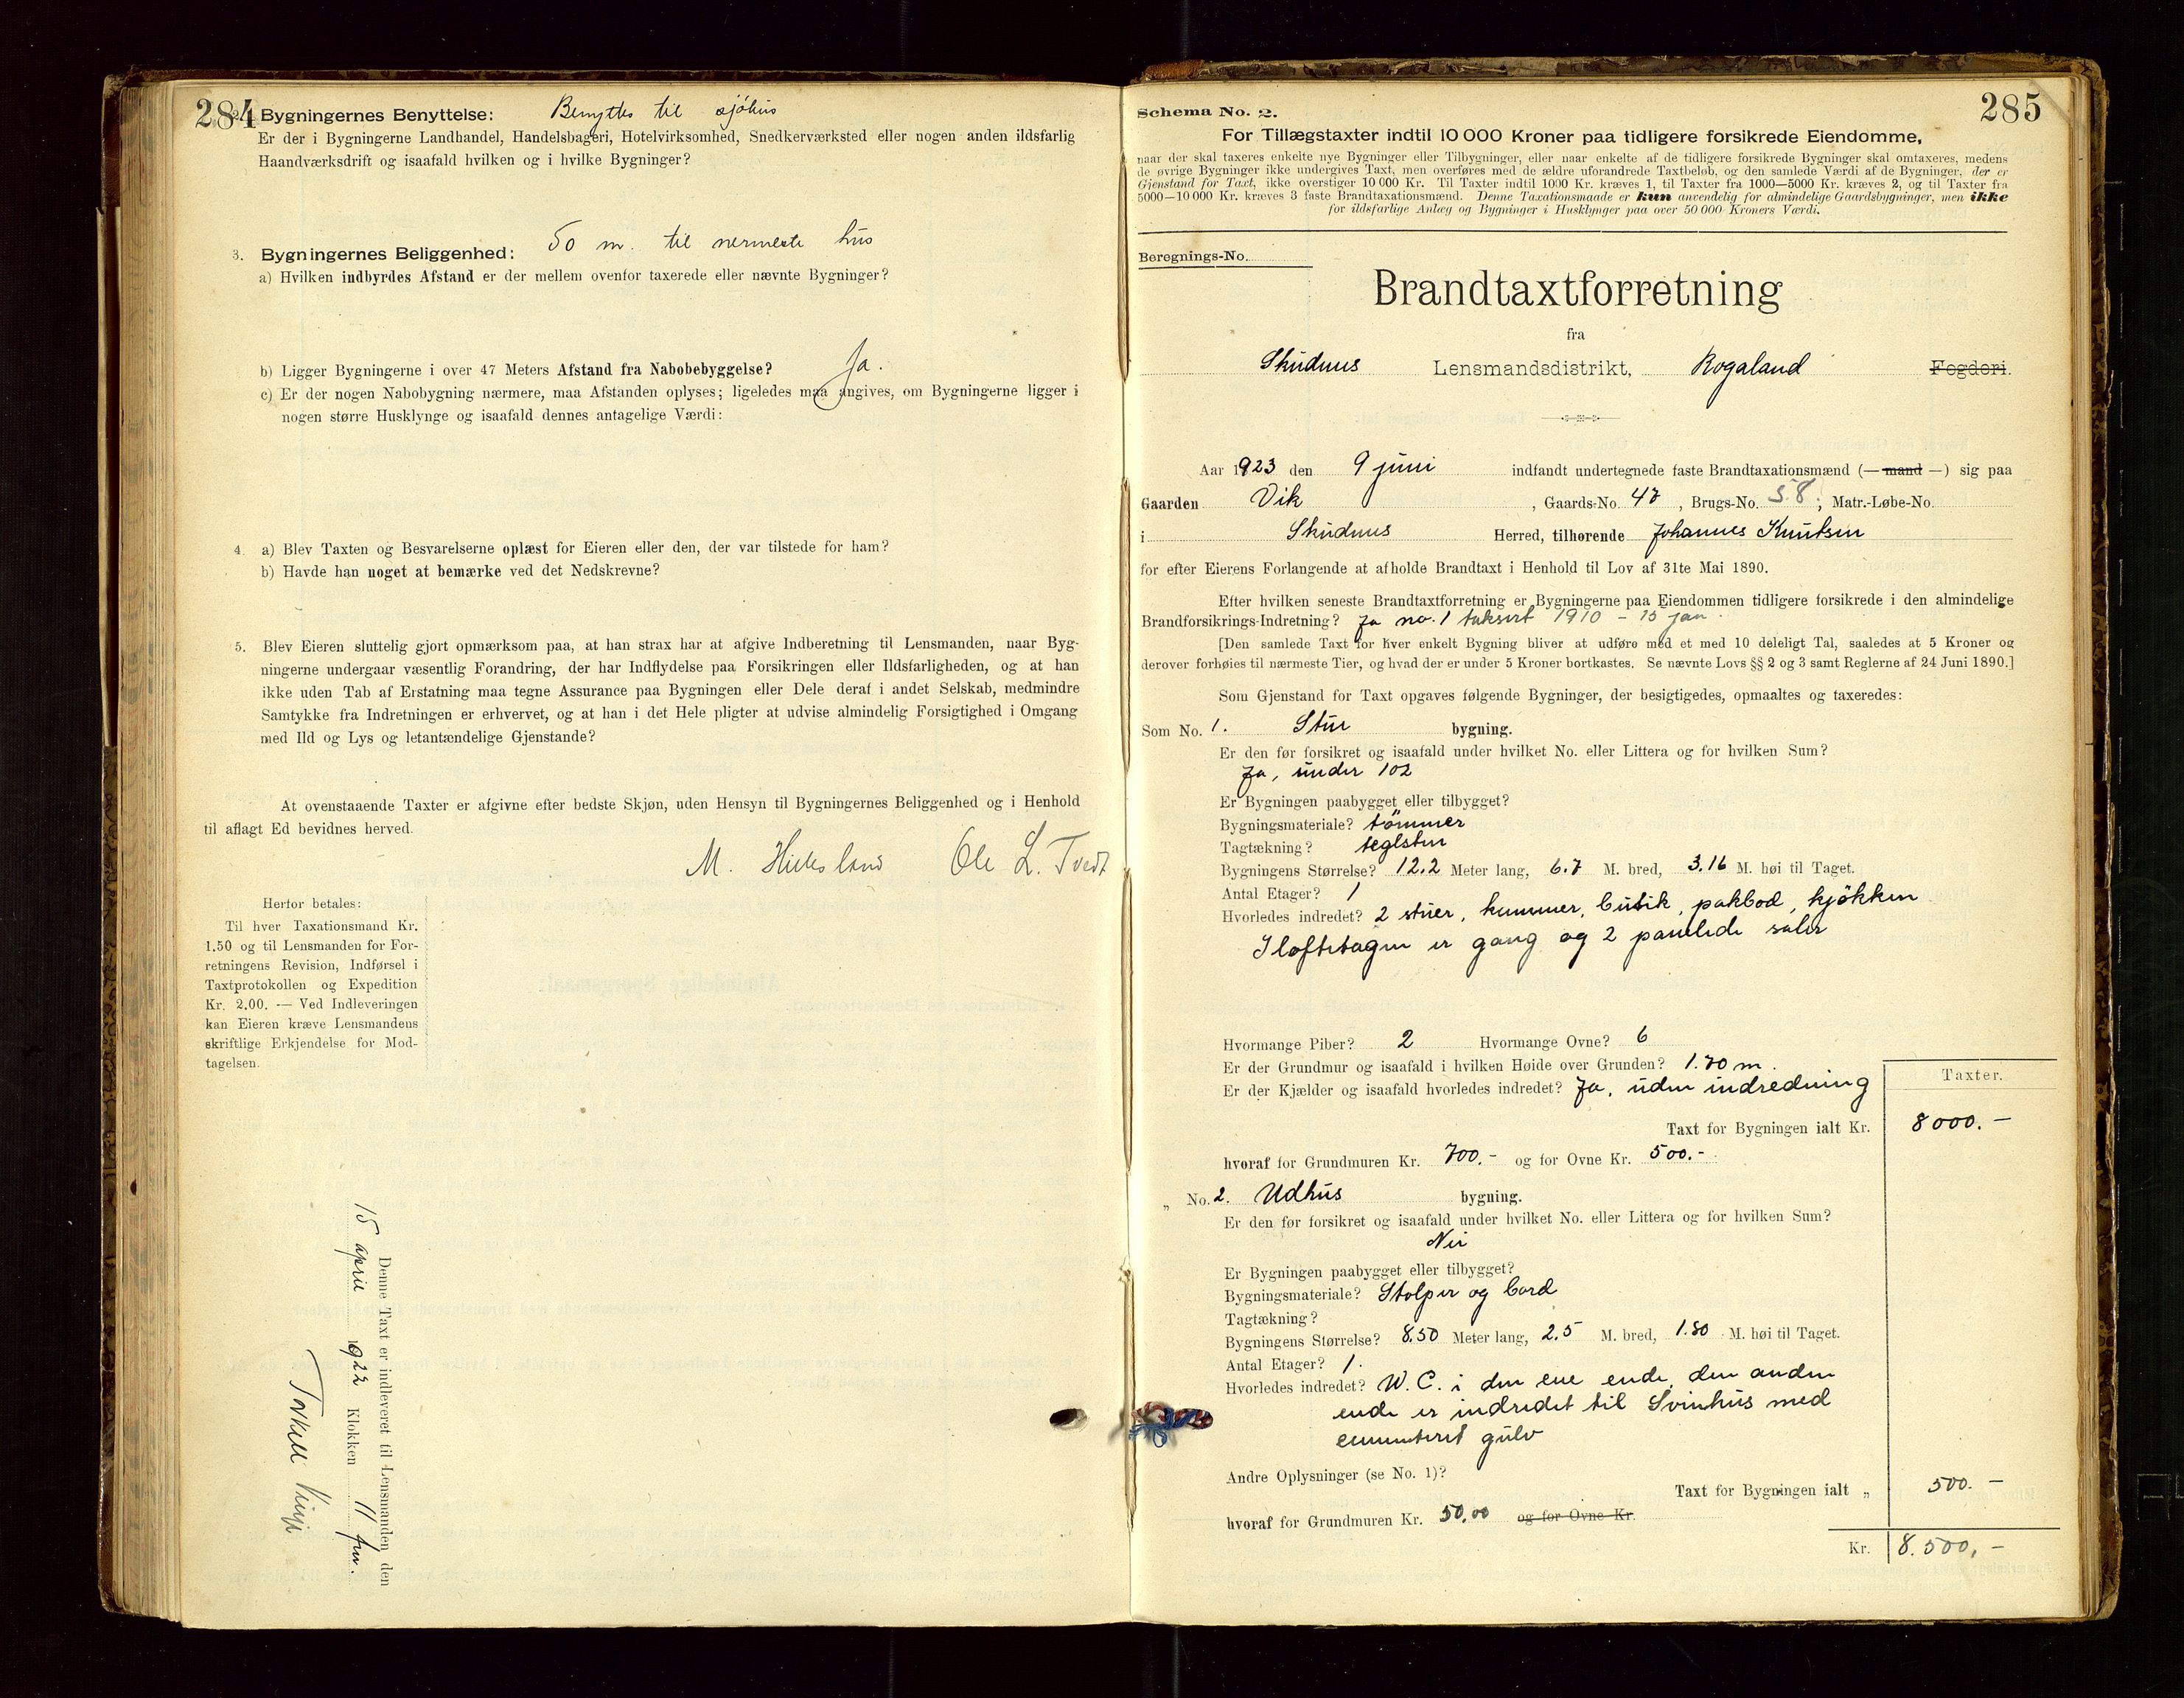 284
2. Bygningernes Benyttelse: Benyttes til sjöhus
Er der i Bygningerne Landhandel, Handelsbageri, Hotelvirksomhed, Snedkerværksted eller nogen anden ildsfarlig
Haandværksdrift og isaafald hvilken og i hvilke Bygninger?
3. Bygningernes Beliggenhed: 50 m. til nermeste hus
a) Hvilken indbyrdes Afstand er der mellem ovenfor taxerede eller nævnte Bygninger?
b) Ligger Bygningerne i over 47 Meters Afstand fra Nabobebyggelse? Ja.
c) Er der nogen Nabobygning nærmere, maa Afstanden oplyses; ligeledes maa angives, om Bygningerne ligger i
nogen større Husklynge og isaafald dennes antagelige Værdi:
4. a) Blev Taxten og Besvarelserne oplæst for Eieren eller den, der var tilstede for ham?
b) Havde han noget at bemærke ved det Nedskrevne?
5. Blev Eieren sluttelig gjort opmærksom paa, at han strax har at afgive Indberetning til Lensmanden, naar Byg-
ningerne undergaar væsentlig Forandring, der har Indflydelse paa Forsikringen eller Ildsfarligheden, og at han
ikke uden Tab af Erstatning maa tegne Assurance paa Bygningen eller Dele deraf i andet Selskab, medmindre
Samtykke fra Indretningen er erhvervet, og at han i det Hele pligter at udvise almindelig Forsigtighed i Omgang
med Ild og Lys og letantændelige Gjenstande?
At ovenstaaende Taxter er afgivne efter bedste Skjøn, uden Hensyn til Bygningernes Beliggenhed og i Henhold
til aflagt Ed bevidnes herved.
M. Hillesland Ole L. Tvedt
Herfor betales:
Til hver Taxationsmand Kr.
1.50 og til Lensmanden for For-
retningens Revision, Indførsel i
Taxtprotokollen og Expedition
Kr. 2.00. — Ved Indleveringen
kan Eieren kræve Lensmandens
skriftlige Erkjendelse for Mod-
tagelsen.
Denne Taxt er indleveret til Lensmanden den
15 april 1922 Klokken 11 fm.
Torkell
285
Schema No. 2.
For Tillægstaxter indtil 10 000 Kroner paa tidligere forsikrede Eiendomme,
naar der skal taxeres enkelte nye Bygninger eller Tilbygninger, eller naar enkelte af de tidligere forsikrede Bygninger skal omtaxeres, medens
de øvrige Bygninger ikke undergives Taxt, men overføres med de ældre uforandrede Taxtbeløb, og den samlede Værdi af de Bygninger, der er
Gjenstand for Taxt, ikke overstiger 10 000 Kr. Til Taxter indtil 1000 Kr. kræves 1, til Taxter fra 1000—5000 Kr. kræves 2, og til Taxter fra
5000—10 000 Kr. kræves 3 faste Brandtaxationsmænd. Denne Taxationsmaade er kun anvendelig for almindelige Gaardsbygninger, men ikke
for ildsfarlige Anlæg og Bygninger i Husklynger paa over 50 000 Kroners Værdi.
Beregnings-No.
Brandtaxtforretning
fra
Skudnes Lensmandsdistrikt, Rogaland Fogderi.
Aar 1923 den 9 juni indfandt undertegnede faste Brandtaxationsmænd (— mand —) sig paa
Gaarden Vik, Gaards-No. 47, Brugs-No. 58; Matr.-Løbe-No.
i Skudnes Herred, tilhørende Johannes Knutsen
for efter Eierens Forlangende at afholde Brandtaxt i Henhold til Lov af 31te Mai 1890.
Efter hvilken seneste Brandtaxtforretning er Bygningerne paa Eiendommen tidligere forsikrede i den almindelige
Brandforsikrings-Indretning? Ja no. 1 taksert 1910 - 15 jan.
[Den samlede Taxt for hver enkelt Bygning bliver at udføre med et med 10 deleligt Tal, saaledes at 5 Kroner og
derover forhøies til nærmeste Tier, og hvad der er under 5 Kroner bortkastes. Se nævnte Lovs §§ 2 og 3 samt Reglerne af 24 Juni 1890.]
Som Gjenstand for Taxt opgaves følgende Bygninger, der besigtigedes, opmaaltes og taxeredes:
Som No. 1. Stue bygning.
Er den før forsikret og isaafald under hvilket No. eller Littera og for hvilken Sum?
Ja, under 102
Er Bygningen paabygget eller tilbygget?
Bygningsmateriale? tömmer
Tagtækning? teglsten
Bygningens Størrelse? 12.2 Meter lang, 6.7 M. bred, 3.16 M. høi til Taget.
Antal Etager? 1
Hvorledes indredet? 2 stuer, kammer, butik, pakbod, kjökken
I loftetagen er gang og 2 panelede saler
Hvormange Piber? 2 Hvormange Ovne? 6
Er der Grundmur og isaafald i hvilken Høide over Grunden? 1.70 m.
Er der Kjælder og isaafald hvorledes indredet? Ja, uden indredning
Taxter.
Taxt for Bygningen ialt Kr. 8000.-
hvoraf for Grundmuren Kr. 700.- og for Ovne Kr. 500.-
„ No. 2. Udhus bygning.
Er den før forsikret og isaafald under hvilket No. eller Littera og for hvilken Sum?
Nei
Er Bygningen paabygget eller tilbygget?
Bygningsmateriale? Stolper og bord
Tagtækning?
Bygningens Størrelse? 8.50 Meter lang, 2.5 M. bred, 1.80 M. høi til Taget.
Antal Etager? 1.
Hvorledes indredet? W.C. i den ene ende, den anden
ende er indredet til Svinhus med
cementeret gulv
Andre Oplysninger (se No. 1)?
Taxt for Bygningen ialt „ 500.-
hvoraf for Grundmuren Kr. 50,00 og for Ovne Kr.
Kr. 8.500,-